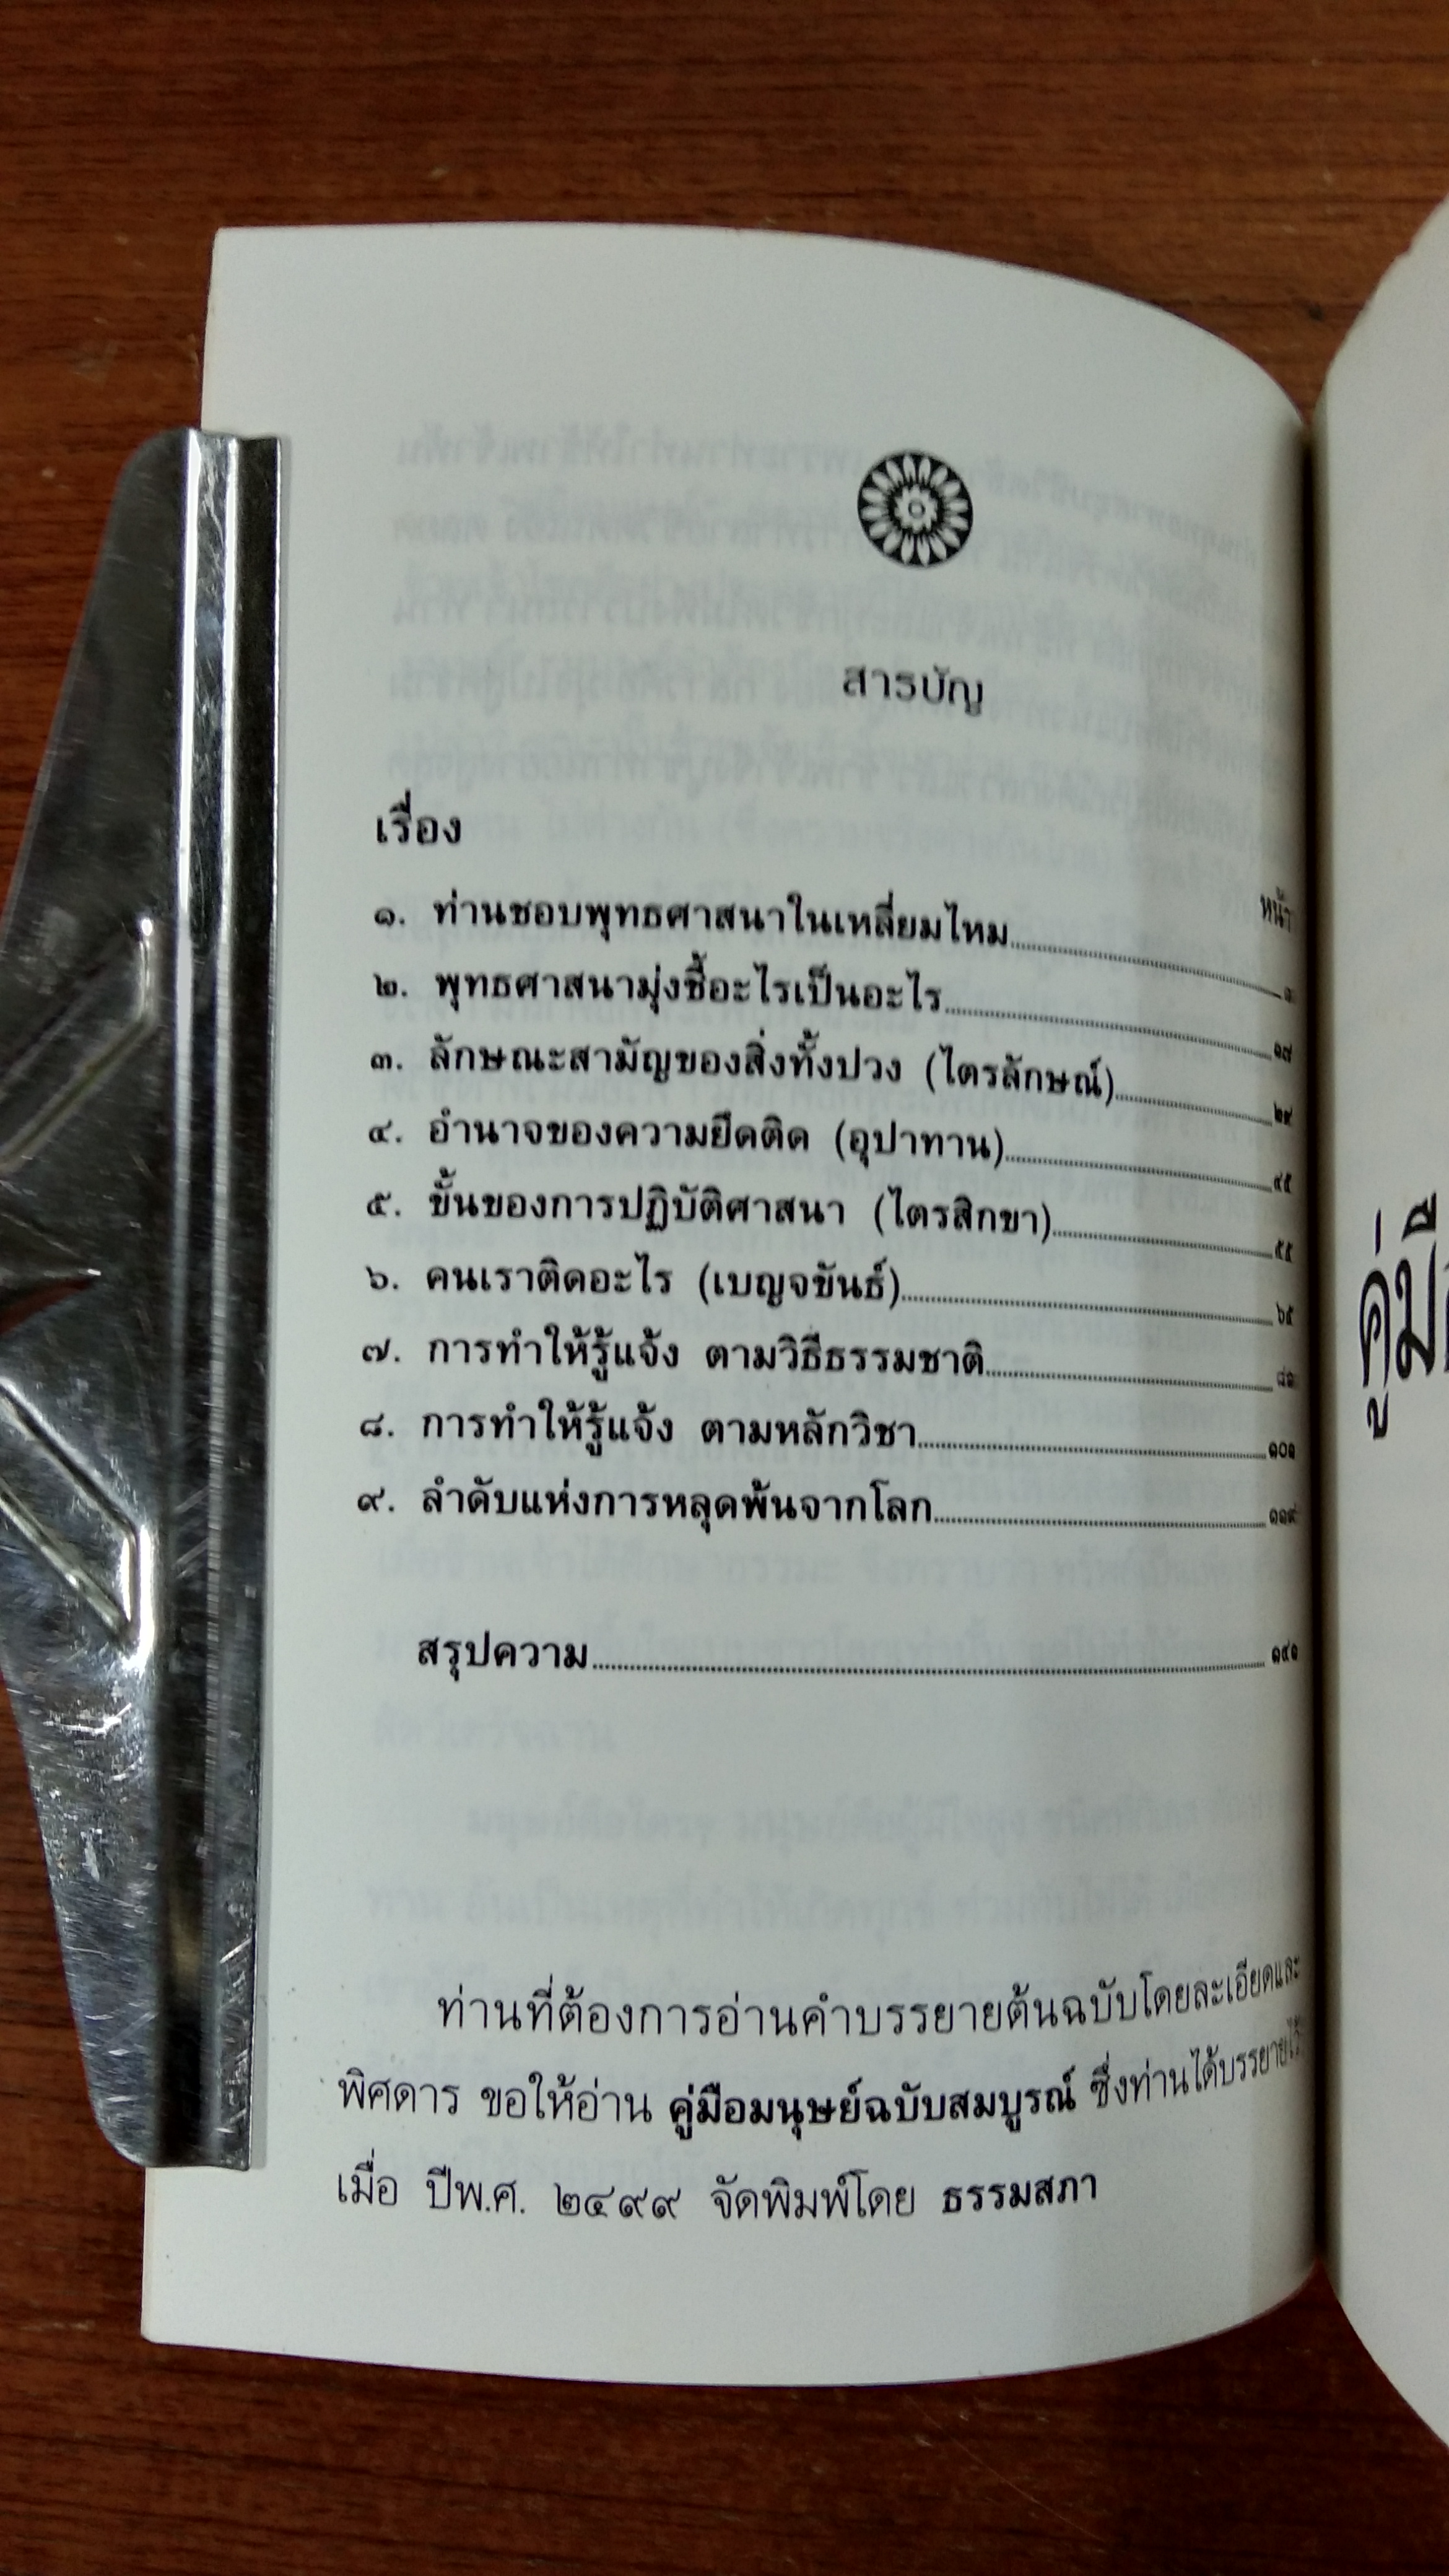 สารบัญ
เรื่อง
หน้า
๑. ท่านชอบพุทธศาสนาในเหลี่ยมไหม........................๑
๒. พุทธศาสนามุ่งชี้อะไรเป็นอะไร........................๑๗
๓. ลักษณะสามัญของสิ่งทั้งปวง (ไตรลักษณ์)........................๒๙
๔. อำนาจของความยึดติด (อุปาทาน)........................๔๕
๕. ขั้นของการปฏิบัติศาสนา (ไตรสิกขา)........................๕๕
๖. คนเราติดอะไร (เบญจขันธ์)........................๖๕
๗. การทำให้รู้แจ้ง ตามวิธีธรรมชาติ........................
๘. การทำให้รู้แจ้ง ตามหลักวิชา........................๑๐๑
๙. ลำดับแห่งการหลุดพ้นจากโลก........................๑๑๙
สรุปความ........................๑๔๑
ท่านที่ต้องการอ่านคำบรรยายต้นฉบับโดยละเอียดและ
พิศดาร ขอให้อ่าน คู่มือมนุษย์ฉบับสมบูรณ์ ซึ่งท่านได้บรรยายไว้
เมื่อ ปีพ.ศ. ๒๔๙๙ จัดพิมพ์โดย ธรรมสภา